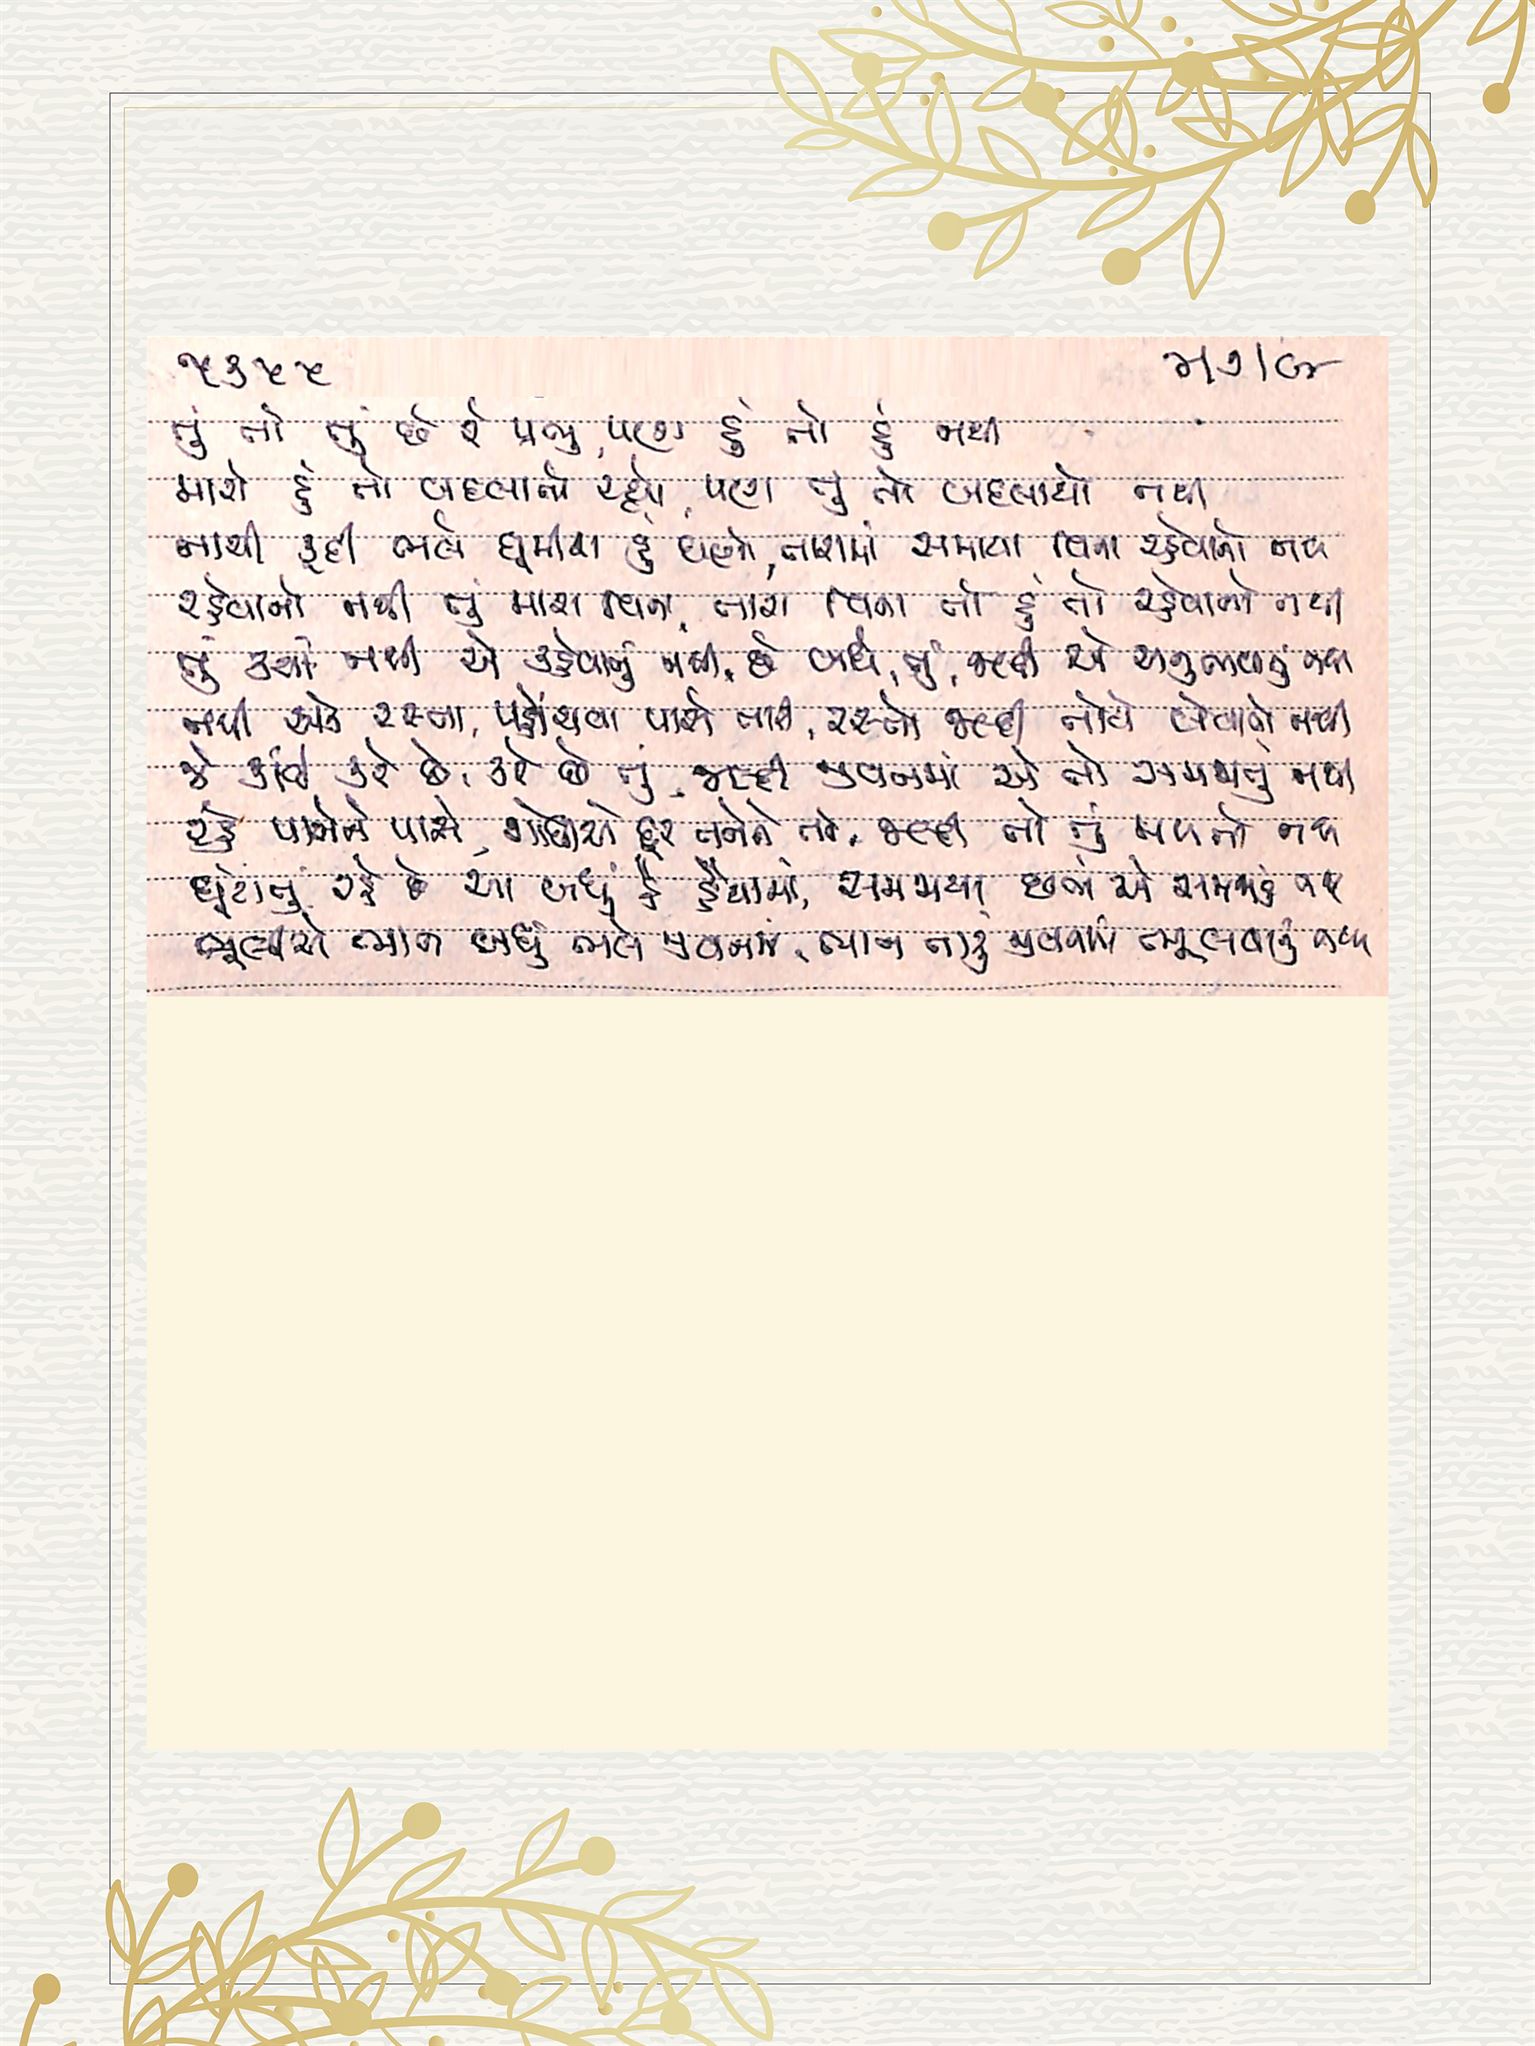 ૫૩૫૫
તું તો તું છે રે પ્રભુ, પણ હું તો હું નથી
મારો હું તો બદલાતો રહ્યો, પણ તું તો બદલાયો નથી
તારાથી છૂટી ભલે ઘૂમીશ હું ઘણો, તારામાં સમાયા વિના રહેવાનો નથી
રહેવાનો નથી તું મારા વિના, તારા વિના તો હું તો રહેવાનો નથી
તું ક્યાં નથી એ કહેવાનું નથી, છે બધે તું, જલ્દી એ અનુભવાતું નથી
નથી એક રસ્તા, પહોંચવા પાસે તારી, રસ્તો જલ્દી તોયે લેવાતો નથી
જે કાંઈ કરે છે, કરે છે તું, જલ્દી જીવનમાં એ તો સમજાતું નથી
રહે પાસેને પાસે, ગોતીએ દૂર તનેને તને, જલ્દી તો તું મળતો નથી
ઘૂંટાતું રહે છે આ બધું રે હૈયામાં, સમજ્યા છતાં એ સમજાતું નથી
ભૂલીએ ભાન બધું ભલે જીવનમાં, ભાન તારું જીવનમાં ભૂલવાનું નથી